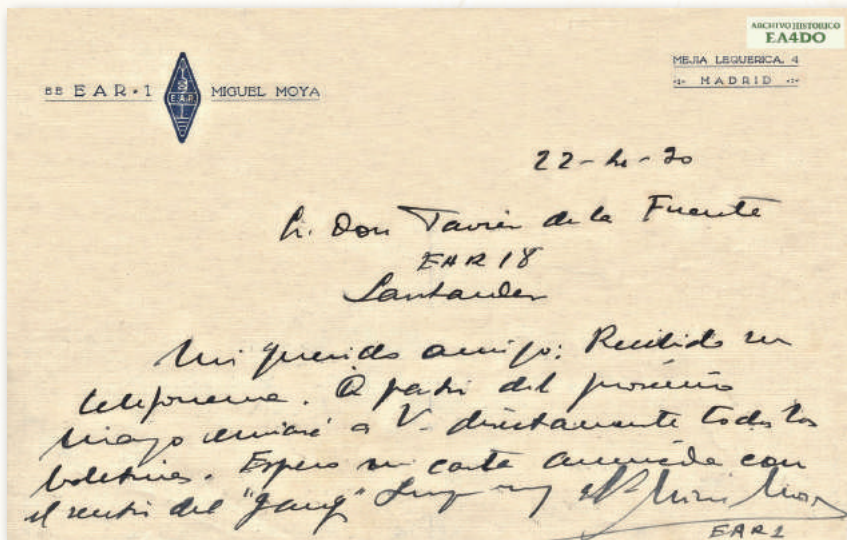 ARCHIVO HISTORICO
EA4DO
EB EAR-1
E.A.R.
MIGUEL MOYA
MEJIA LEQUERICA, 4
MADRID
22-4-30
Sr. Don Javier de la Fuente
EAR 18
Santander
Mi querido amigo: Recibido su
telefonema. A partir del próximo
mayo enviaré a V. directamente todos los
boletines. Espero su carta anunciada con
el sentir del "gang"
EAR1